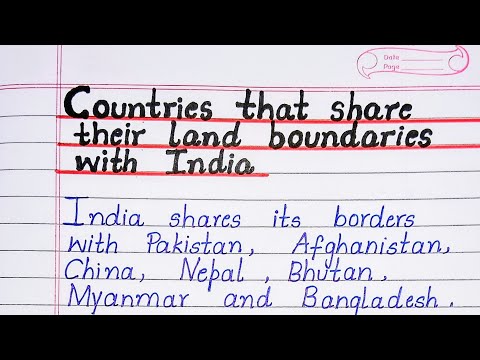 Date
Page
Countries that share
their land boundaries
with India
India shares its borders
with Pakistan, Afghanistan,
China, Nepal , Bhutan,
Myanmar and Bangladesh.